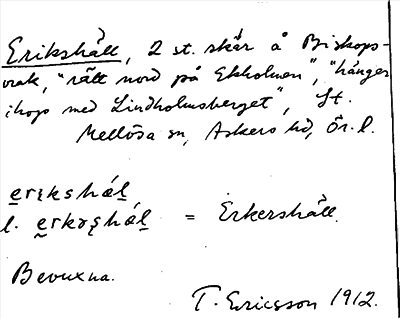 Erikshäll, 2 st. skär å Biskops-
vrak, "rätt nord på Ekholmen", "hänger
ihop med Lindholmsberget", St.
Mellösa sn, Askers hd, Ör. l.
erikshäl
l. erkəshäl = Erkershäll.
Bevuxna.
T. Ericsson 1912.